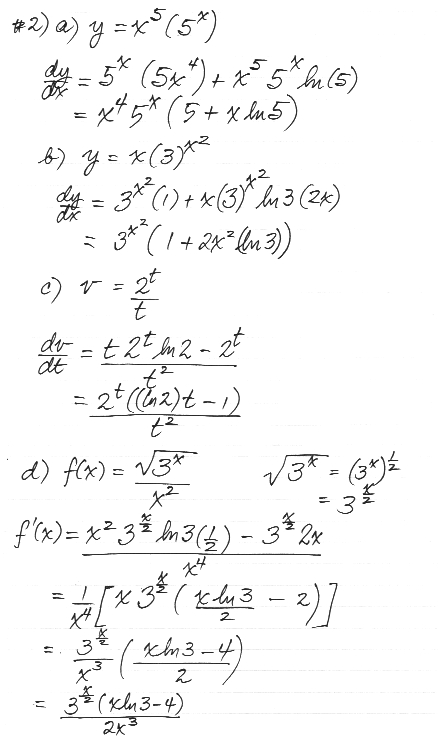 #2) a) y = x⁵(5ˣ)
dy/dx = 5ˣ (5x⁴) + x⁵ 5ˣ ln(5)
= x⁴ 5ˣ (5 + x ln 5)
b) y = x(3)^x²
dy/dx = 3^x² (1) + x(3)^x² ln 3 (2x)
= 3^x² (1 + 2x² (ln 3))
c) v = 2ᵗ/t
dv/dt = (t 2ᵗ ln 2 - 2ᵗ)/t²
= 2ᵗ((ln 2)t - 1)/t²
d) f(x) = √3ˣ/x² √3ˣ = (3ˣ)^½
= 3^(x/2)
f'(x) = (x² 3^(x/2) ln 3 (½) - 3^(x/2) 2x)/x⁴
= 1/x⁴ [x 3^(x/2) (x ln 3/2 - 2)]
= 3^(x/2)/x³ ((x ln 3 - 4)/2)
= 3^(x/2) (x ln 3 - 4)/2x³